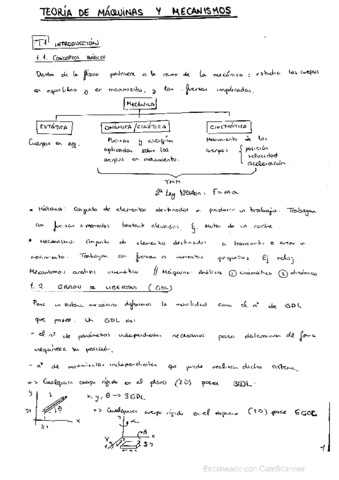 TEORÍA DE MÁQUINAS Y MECANISMOS
T1 INTRODUCCIÓN
1.1. CONCEPTOS BÁSICOS
Dentro de la física pertenece a la rama de la mecánica: estudia los cuerpos
en equilibrio y en movimiento, y las fuerzas implicadas.
MECÁNICA
ESTÁTICA
DINÁMICA/CINÉTICA
CINEMÁTICA
Cuerpos en eq.
Fuerzas y
aplicadas sobre los
cuerpos en movimiento.
Movimiento de los
cuerpos { posición
velocidad
aceleración
TMM
2ª Ley Newton: F=ma
• Máquina: Conjunto de elementos destinados a producir un trabajo. Trabajan
con fuerzas o momentos bastante elevados. Ej. Motor de un coche
• Mecanismo: Conjunto de elementos destinados a transmitir o crear un
movimiento. Trabajan con fuerzas o momentos pequeños. Ej reloj
Mecanismos: análisis cinemático // Máquina: Análisis ① cinemático ② dinámico
1.2. GRADO DE LIBERTAD (GDL)
Para un sistema mecánico definimos la movilidad como el nº de GDL
que posee. Un GDL es:
- el nº de parámetros independientes necesarios para determinar de forma
inequívoca su posición.
- nº de movimientos independientes que puede realizar dicho sistema.
=> Cualquier cuerpo rígido en el plano (2D) posee 3GDL.
x, y, θ → 3GDL
=> Cualquier cuerpo rígido en el espacio (3D) posee 6GDL
1
Escaneado con CamScanner